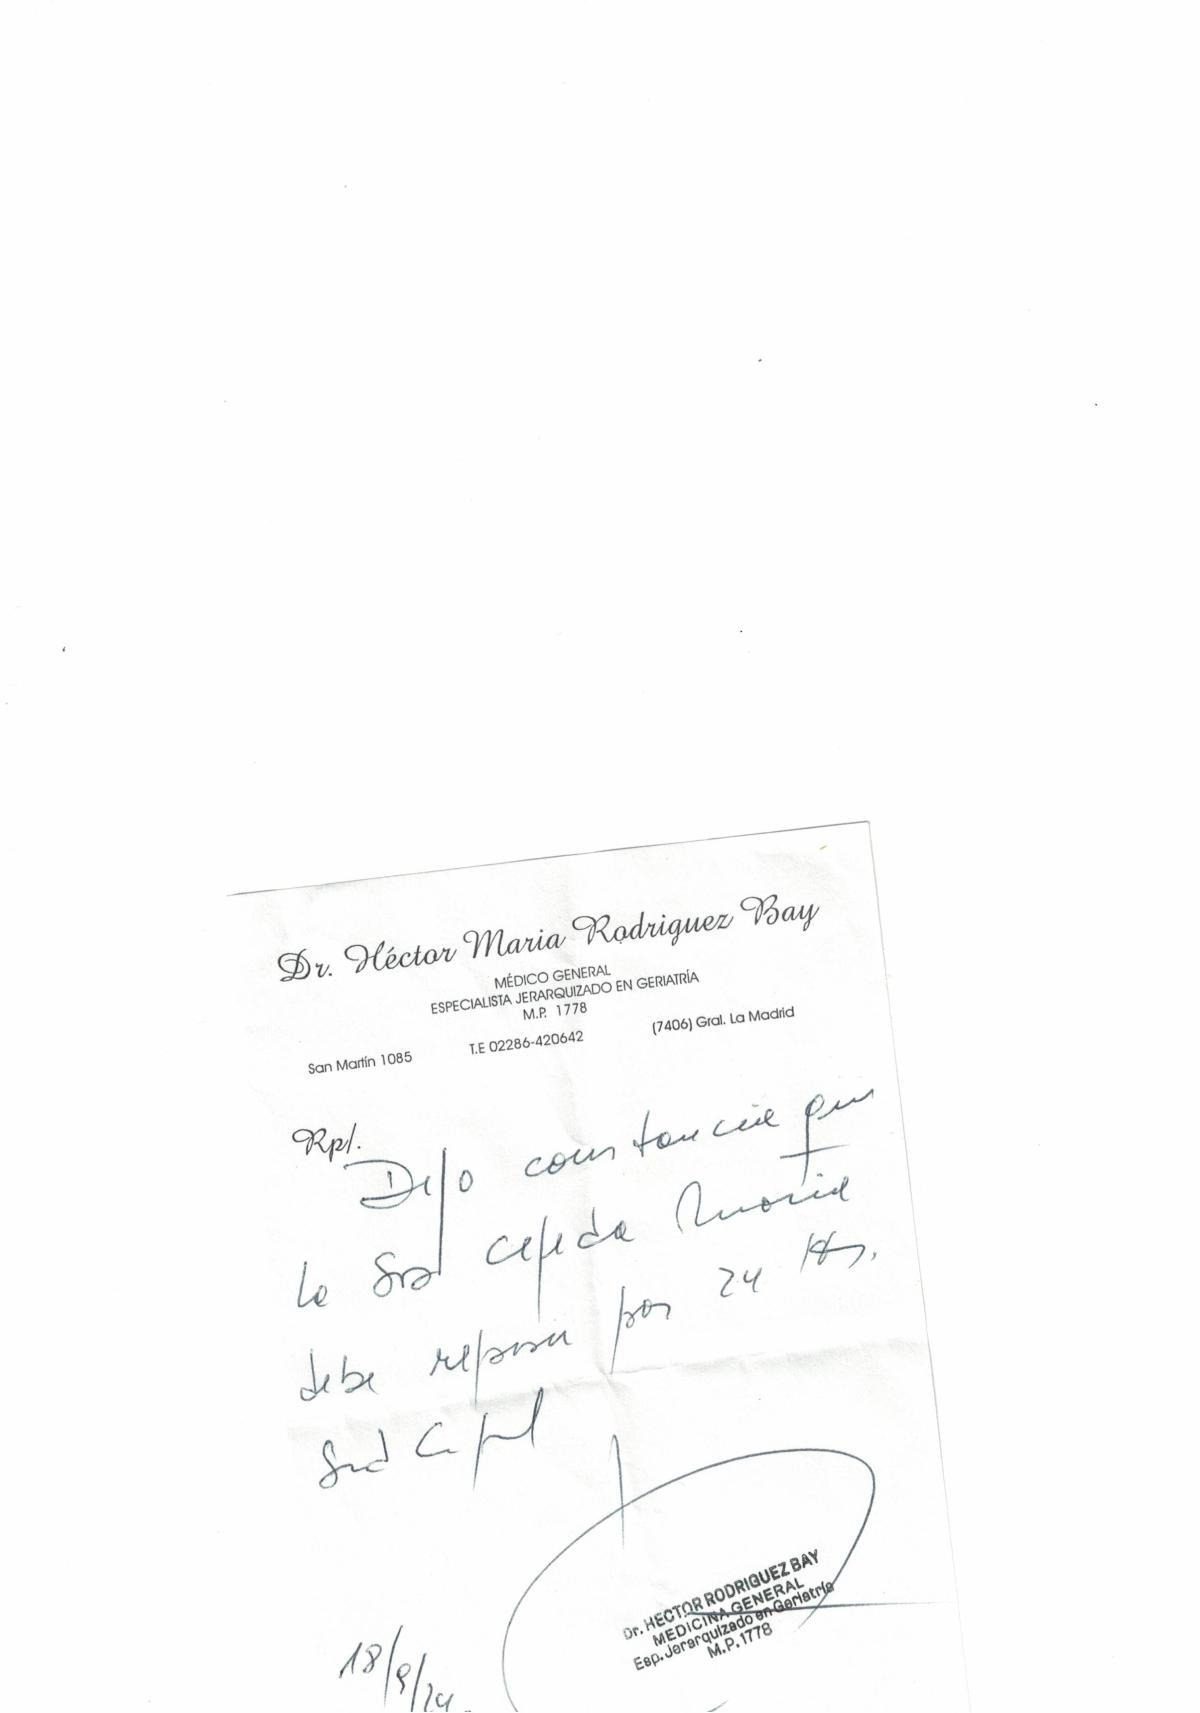 Dr. Héctor Maria Rodriguez Bay
MÉDICO GENERAL
ESPECIALISTA JERARQUIZADO EN GERIATRÍA
M.P. 1778
San Martín 1085 T.E 02286-420642 (7406) Gral. La Madrid
Rp/.
Dejo constancia que
la Sra Cepeda Maria
debe reposar por 24 Hs.
18/9/24.
Dr. HECTOR RODRIGUEZ BAY
MEDICINA GENERAL
Esp. Jerarquizado en Geriatría
M.P. 1778